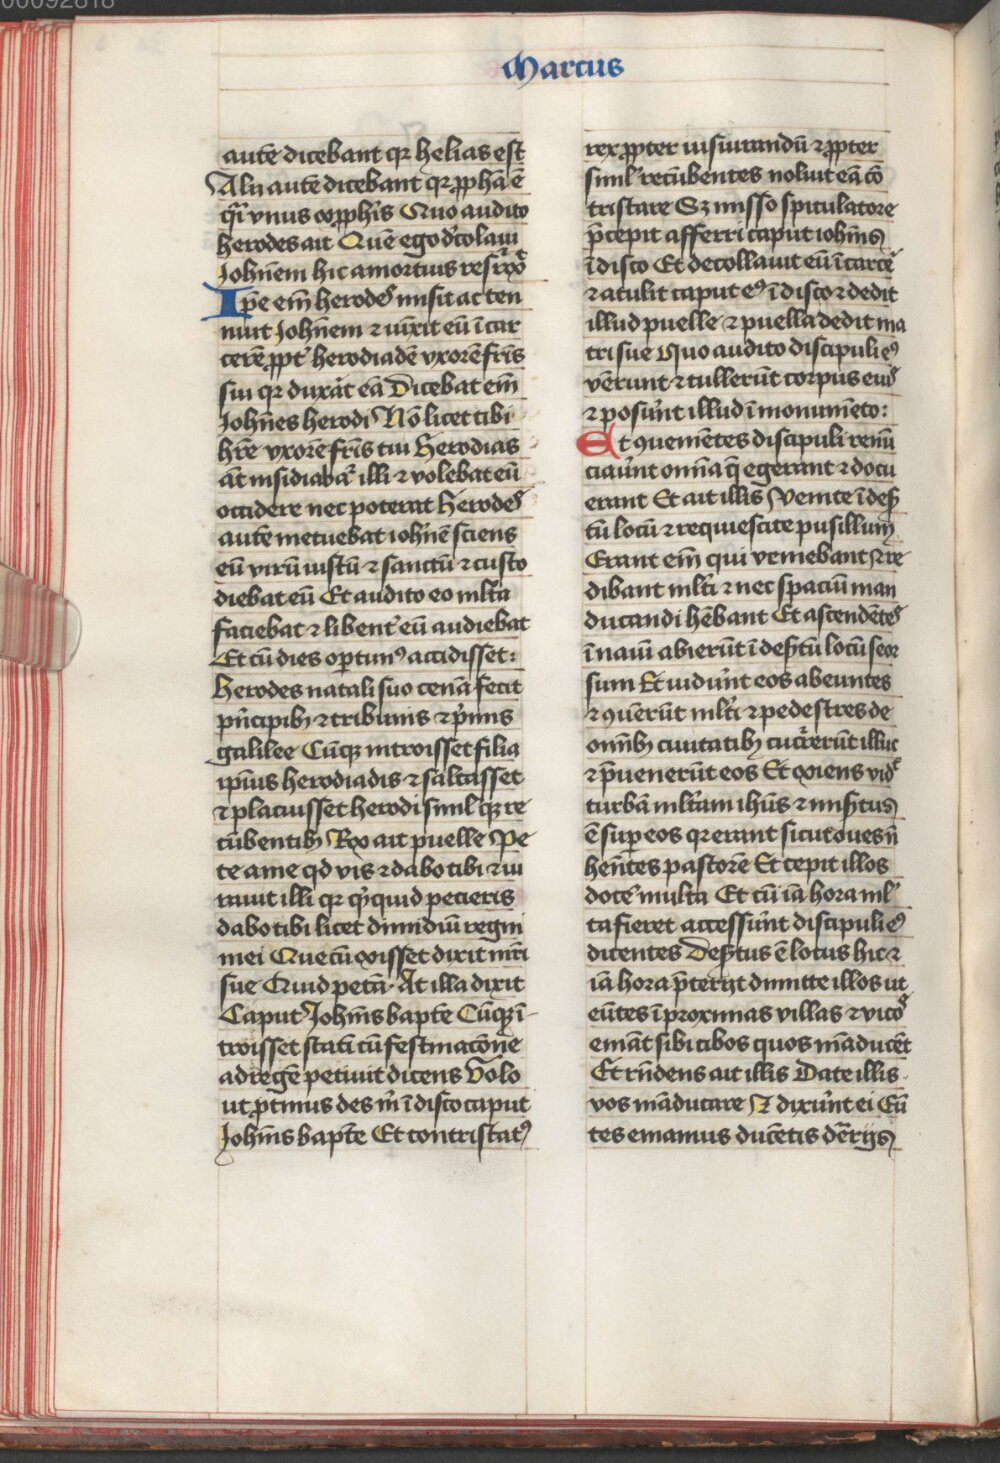 00092818
Marcus
autē dicebant qꝛ helias est
Alij autē dicebant qꝛ ꝓphā ē
q̄i vnus ex ꝓphīs Quo audito
herodes ait Quē ego dc̄olaui
Johnēm hic a mortuis resr̄rexͭ
Ipē em̄ herodes misit ac ten
nuit Johnēm ⁊ uīxit eū ī car
cerē ꝓpt̄ herodiadē vxorē fr̄is
sui qꝛ duxāt eā Dicebat em̄
Johnēs herodi Nō licet tibi
hr̄e vxorē fr̄is tui Herodias
āt insidiabāꝛ illi ⁊ volebat eū
occidere nec poterat Herodes
autē metuebat iohnē̄ sciens
eū virū iustū ⁊ sanctū ⁊ custo
diebat eū Et audito eo ml̄ta
faciebat ⁊ libent̄ eū audiebat
Et cū dies oportunꝰ accidisset:
Herodes natali suo cenā fecit
pn̄cipibꝫ ⁊ tribunis ⁊ pͥmis
galilee Cūqꝫ introisset filia
ip̄ius herodiadis ⁊ saltasset
⁊ placuisset herodi siml̄qꝫ re
cūbentibꝫ Rex ait puelle Pe
te a me qd vis ⁊ dabo tibi ⁊ iu
rauit illi qꝛ qͥcquid pecieris
dabo tibi licet dimidiū regni
mei Que cū exisset dixit mr̄i
sue Quid petā At illa dixit
Caput Johnīs bapt̄e Cūqꝫ ī-
troisset statī cū festinacōne
ad regē petiuit dicens Volo
ut ꝓtinus des m̄ ī disco caput
Johnīs bapt̄e Et contristatꝰ
rex ꝓpter iusiurandū ⁊ ꝓpter
siml̄ recūbentes noluit eā cō
tristare Sꝫ misso spiculatore
p̄cepit afferri caput iohnīs
ī disco Et decollauit eū ī carcē
⁊ atulit caput eꝰ ī disco ⁊ dedit
illud puelle ⁊ puella dedit ma
tri sue Quo audito discipuli eꝰ
vēerunt ⁊ tullerūt corpus eius
⁊ posuīt illud ī monumēto:
Et ꝯueniētes discipuli renū
ciaūnt omīa q̄ egerant ⁊ docu
erant Et ait illis Venite ī des̄
tū locū ⁊ requiescite pusillum
Erant em̄ qui veniebant ⁊ re
dibant ml̄ti ⁊ nec spaciū man
ducandi hēbant Et ascendētes
ī nauī abierūt ī des̄tū locū seor
sum Et uidūnt eos abeuntes
⁊ ꝯuērūt ml̄ti ⁊ pedestres de
omībꝫ ciuitatibꝫ cucr̄rerūt illuc
⁊ p̄uenerūt eos Et exiens vidͭ
turbā ml̄tam ihūs ⁊ mis̄tus
ē super eos qꝛ erant sicut oues n̄
hēntes pastorē Et cepit illos
docē multa Et cū iā hora ml̄
ta fieret accessūnt discipuli eꝰ
dicentes Des̄tus ē locus hic ⁊
iā hora p̄terijt dimitte illos ut
eūtes ī proximas villas ⁊ vicos
emāt sibi cibos quos māducēt
Et rn̄dens ait illis Date illis
vos māducare Et dixūnt ei Eū
tes emamus ducētis dēnrijs